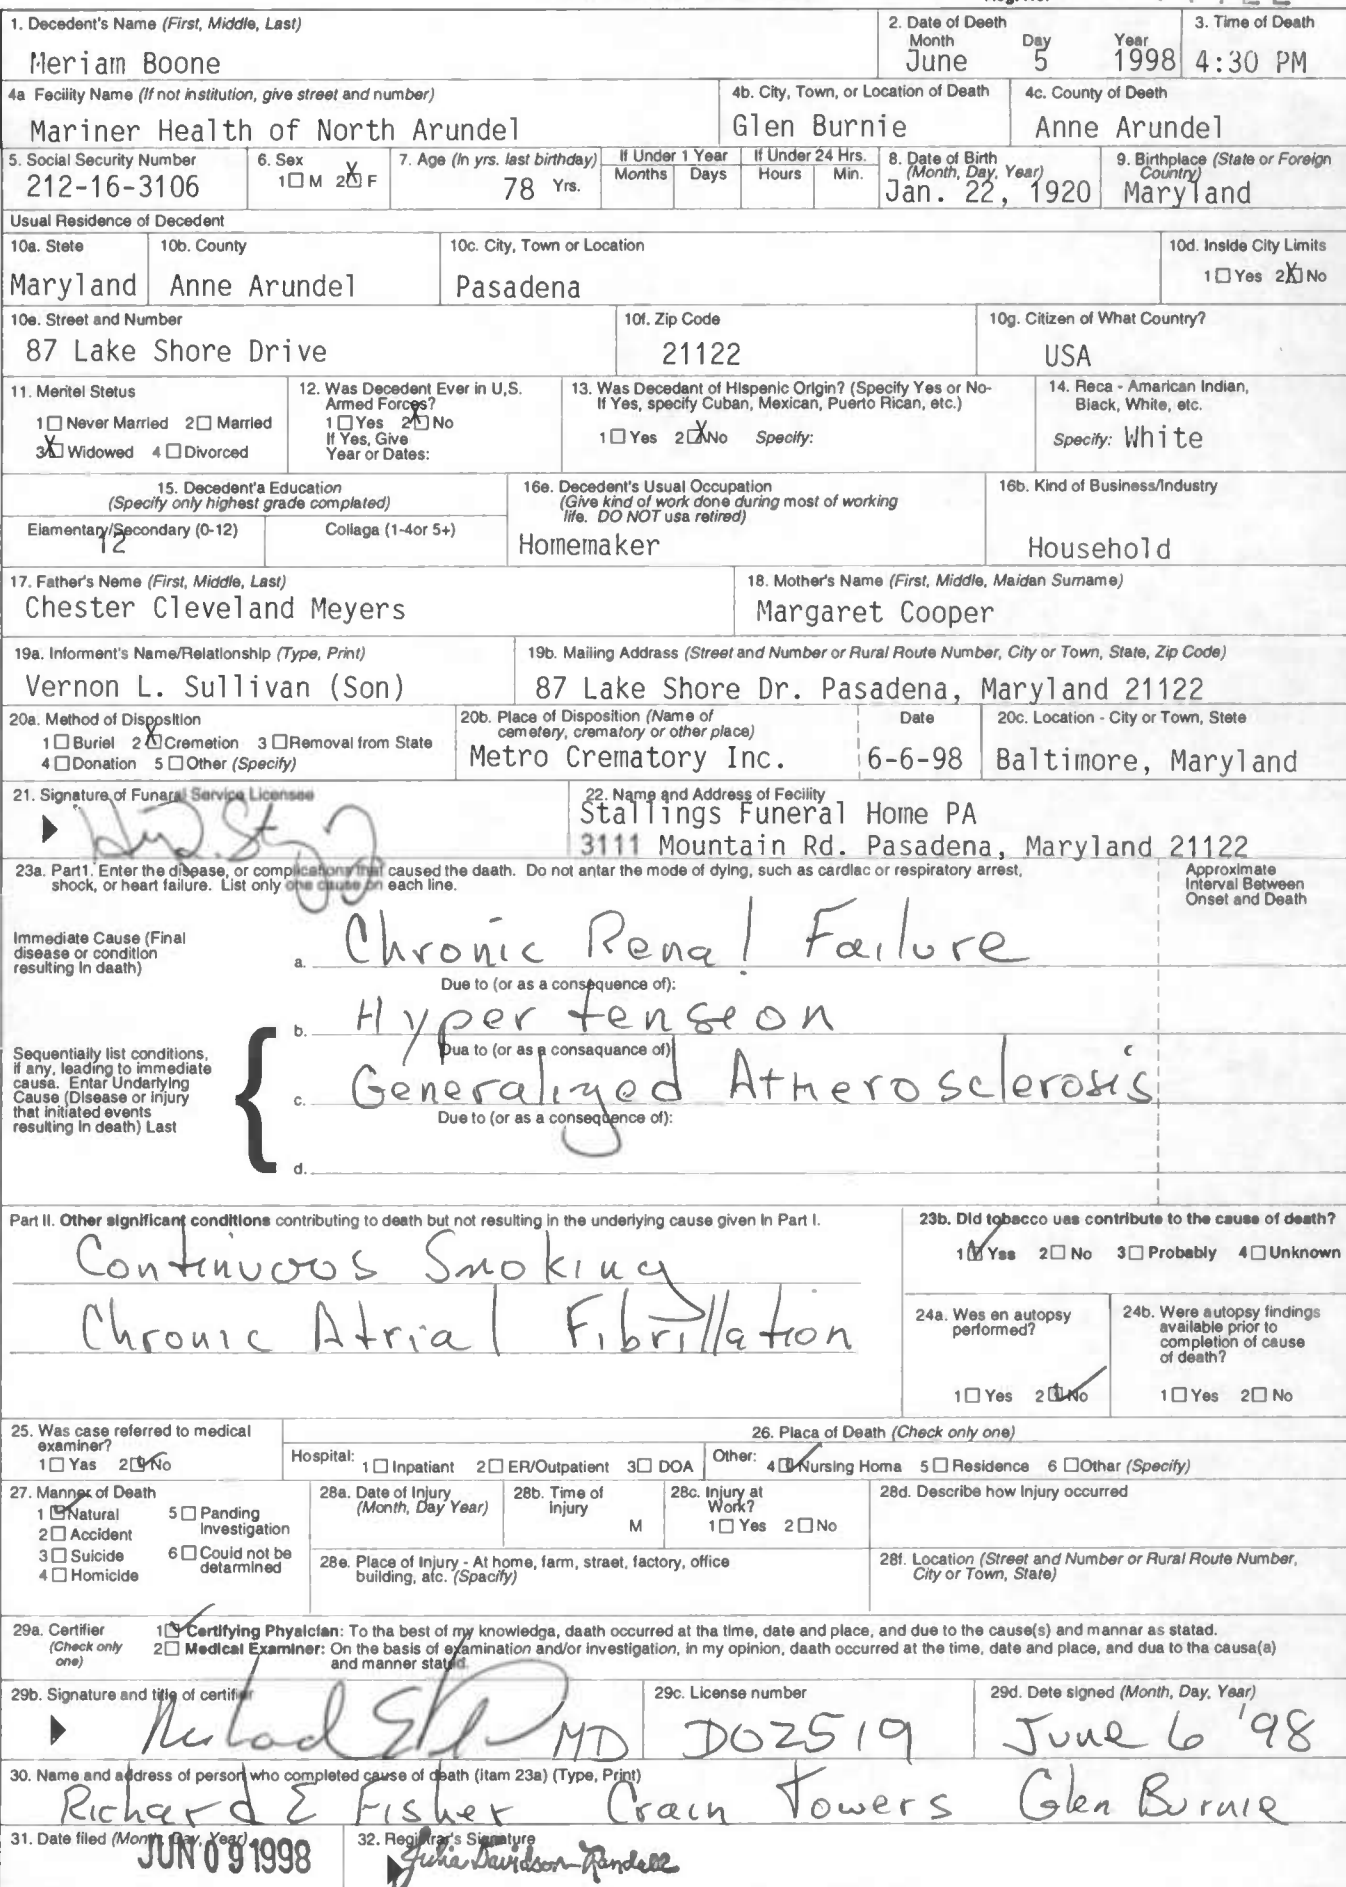 1. Decedent's Name (First, Middle, Last)
Meriam Boone
2. Date of Deeth
Month Day Year
June 5 1998
3. Time of Death
4:30 PM
4a Fecility Name (If not institution, give street and number)
Mariner Health of North Arundel
4b. City, Town, or Location of Death
Glen Burnie
4c. County of Deeth
Anne Arundel
5. Social Security Number
212-16-3106
6. Sex
1☐ M 2☒ F
7. Age (In yrs. last birthday)
78 Yrs.
If Under 1 Year
Months Days
If Under 24 Hrs.
Hours Min.
8. Date of Birth
(Month, Day, Year)
Jan. 22, 1920
9. Birthplace (State or Foreign
Country)
Maryland
Usual Residence of Decedent
10a. Stete
Maryland
10b. County
Anne Arundel
10c. City, Town or Location
Pasadena
10d. Inside City Limits
1☐ Yes 2☒ No
10e. Street and Number
87 Lake Shore Drive
10f. Zip Code
21122
10g. Citizen of What Country?
USA
11. Meritel Stetus
1☐ Never Married 2☐ Married
3☒ Widowed 4☐ Divorced
12. Was Decedent Ever in U,S.
Armed Forces?
1☐ Yes 2☒ No
If Yes, Give
Year or Dates:
13. Was Decedant of Hispenic Origin? (Specify Yes or No-
If Yes, specify Cuban, Mexican, Puerto Rican, etc.)
1☐ Yes 2☒ No Specify:
14. Reca - Amarican Indian,
Black, White, etc.
Specify: White
15. Decedent'a Education
(Specify only highest grade complated)
Elamentary/Secondary (0-12)
12
Collaga (1-4or 5+)
16e. Decedent's Usual Occupation
(Give kind of work done during most of working
life. DO NOT usa retired)
Homemaker
16b. Kind of Business/Industry
Household
17. Father's Neme (First, Middle, Last)
Chester Cleveland Meyers
18. Mother's Name (First, Middle, Maidan Surname)
Margaret Cooper
19a. Informent's Name/Relationship (Type, Print)
Vernon L. Sullivan (Son)
19b. Mailing Address (Street and Number or Rural Route Number, City or Town, State, Zip Code)
87 Lake Shore Dr. Pasadena, Maryland 21122
20a. Method of Disposition
1☐ Buriel 2☒ Cremetion 3☐ Removal from State
4☐ Donation 5☐ Other (Specify)
20b. Place of Disposition (Name of
cemetery, crematory or other place)
Metro Crematory Inc.
Date
6-6-98
20c. Location - City or Town, Stete
Baltimore, Maryland
21. Signature of Funaral Service Licensee
22. Name and Address of Fecility
Stallings Funeral Home PA
3111 Mountain Rd. Pasadena, Maryland 21122
23a. Part1. Enter the disease, or complications that caused the daath. Do not antar the mode of dying, such as cardlac or respiratory arrest,
shock, or heart failure. List only one cause on each line.
Approximate
Interval Between
Onset and Death
Immediate Cause (Final
disease or condition
resulting in daath)
a. Chronic Renal Failure
Due to (or as a consequence of):
b. Hypertenseon
Dua to (or as a consaquance of)
Sequentially list conditions,
if any, leading to immediate
causa. Entar Undarlying
Cause (Disease or injury
that initiated events
resulting in death) Last
c. Generalized Atherosclerosis
Due to (or as a consequence of):
d.
Part II. Other significant conditions contributing to death but not resulting in the underlying cause given in Part I.
Continuoos Smoking
Chronic Atrial Fibrillation
23b. Did tobacco uas contribute to the cause of death?
1☑ Yss 2☐ No 3☐ Probably 4☐ Unknown
24a. Wes en autopsy
performed?
1☐ Yes 2☑ No
24b. Were autopsy findings
available prior to
completion of cause
of death?
1☐ Yes 2☐ No
25. Was case referred to medical
examiner?
1☐ Yas 2☑ No
26. Placa of Death (Check only one)
Hospital: 1☐ Inpatiant 2☐ ER/Outpatient 3☐ DOA
Other: 4☑ Nursing Homa 5☐ Residence 6☐ Othar (Specify)
27. Manner of Death
1☑ Natural 5☐ Panding
Investigation
2☐ Accident
3☐ Suicide 6☐ Could not be
detarmined
4☐ Homicide
28a. Date of Injury
(Month, Day Year)
28b. Time of
Injury
M
28c. Injury at
Work?
1☐ Yes 2☐ No
28d. Describe how Injury occurred
28e. Place of Injury - At home, farm, straet, factory, office
building, atc. (Spacify)
28f. Location (Street and Number or Rural Route Number,
City or Town, State)
29a. Certifier
(Check only
one)
1☑ Certifying Phyaician: To tha best of my knowledga, daath occurred at tha time, date and place, and due to the cause(s) and mannar as statad.
2☐ Medical Examiner: On the basis of examination and/or investigation, in my opinion, daath occurred at the time, date and place, and dua to tha causa(a)
and manner stated.
29b. Signature and title of certifier
MD
29c. License number
D02519
29d. Dete signed (Month, Day, Year)
June 6 '98
30. Name and address of person who completed cause of death (itam 23a) (Type, Print)
Richard E Fisher Crain Towers Glen Burnie
31. Date filed (Month, Day, Year)
JUN 09 1998
32. Registrar's Signature
Julia Davidson-Randall